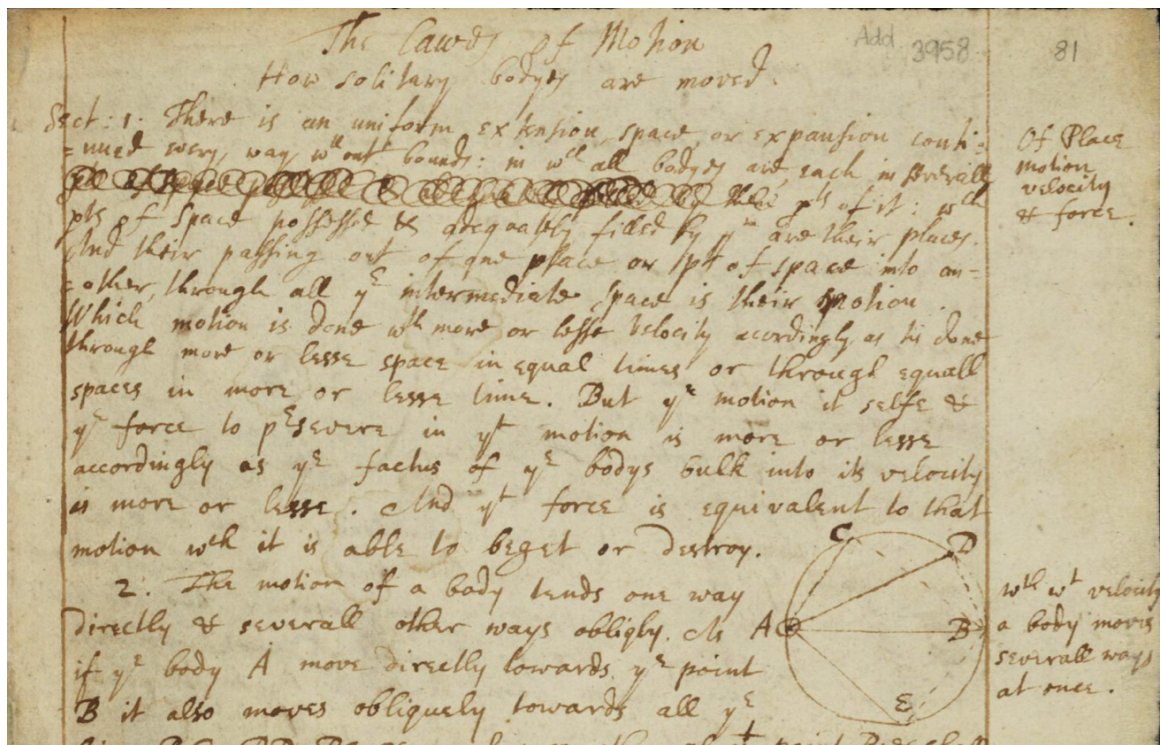 The Lawes of Motion
Add. 3958
81
How solitary bodyes are moved.
Sect: 1. There is an uniform extension, space, or expansion conti=
=nued every way wthout bounds: in wch all bodyes are each in severall
pts of it: wch
pts of space possessed & adequately filled by ym are their places.
And their passing out of one place or pt of space into an=
=other, through all ye intermediate space is their motion.
Which motion is done wth more or lesse velocity accordingly as tis done
through more or lesse space in equal times or through equall
spaces in more or lesse time. But ye motion it selfe &
ye force to persevere in yt motion is more or lesse
accordingly as ye factus of ye bodys bulk into its velocity
is more or lesse. And yt force is equivalent to that
motion wch it is able to beget or destroy.
2. The motion of a body tends one way
directly & severall other ways obliqly. As
if ye body A move directly towards ye point
B it also moves obliquely towards all ye
Of Place
motion
velocity
& force.
C
D
A
B
E
wth wt velocity
a body moves
severall ways
at once.